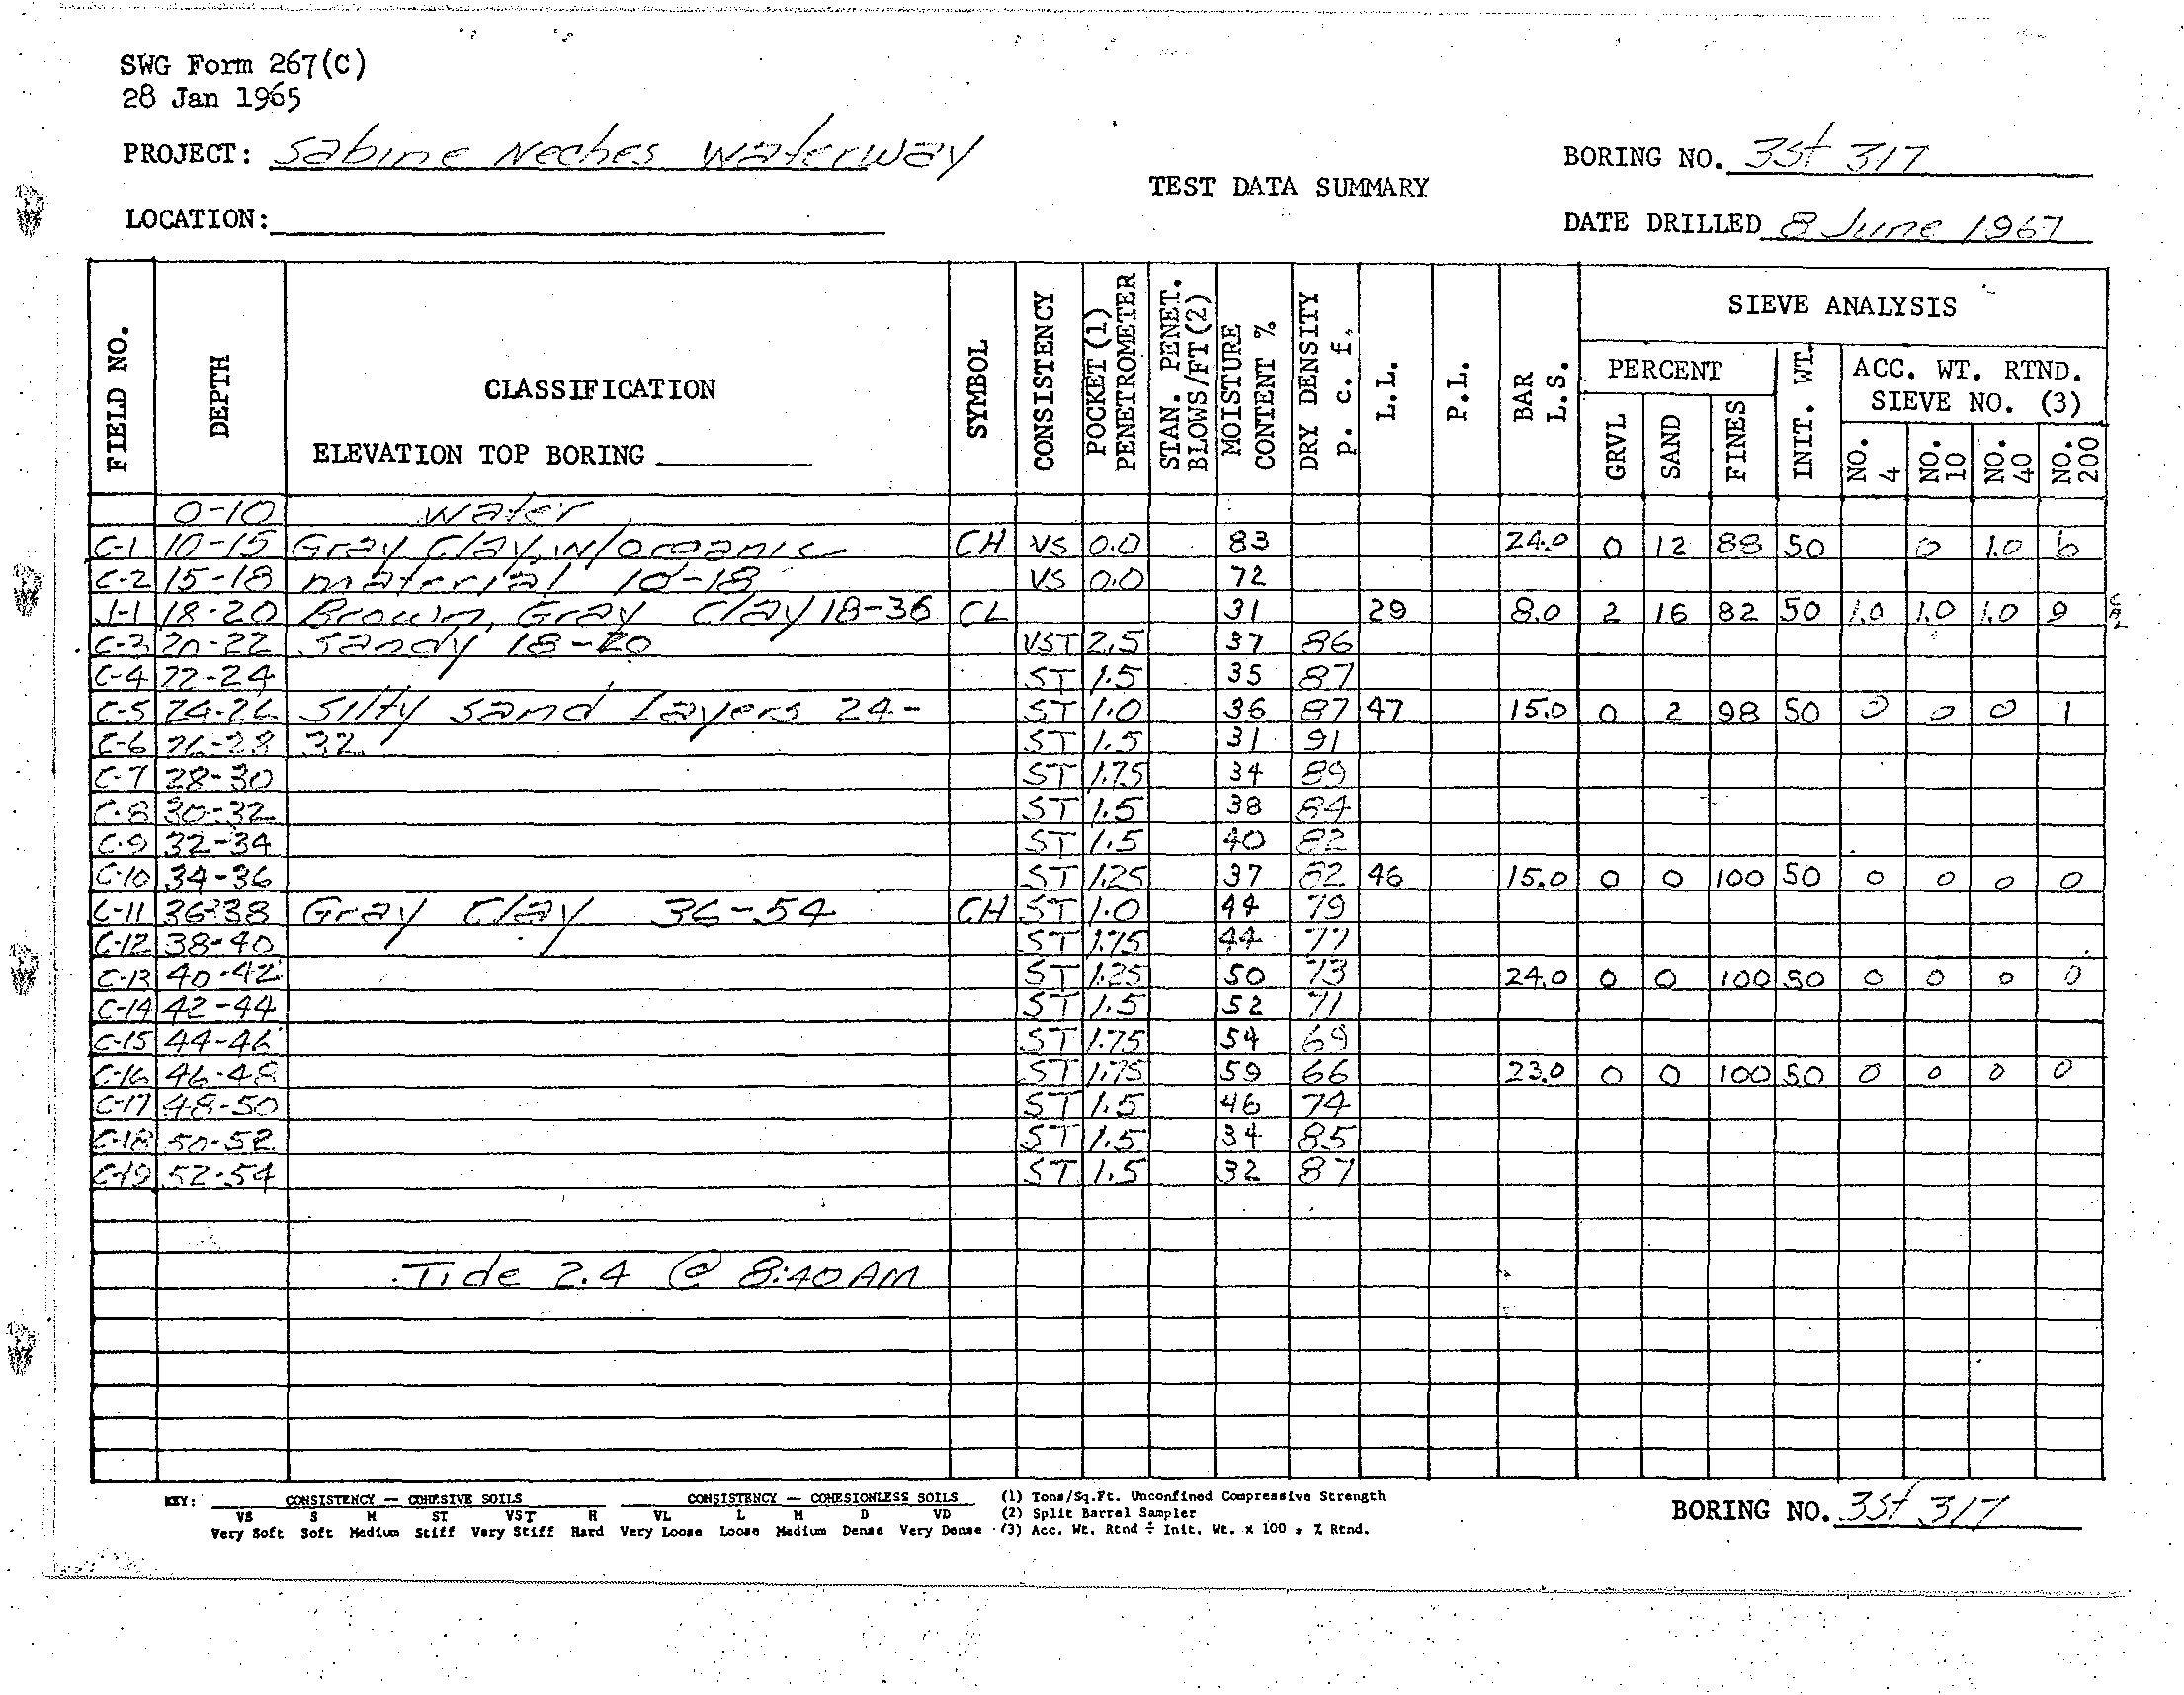 SWG Form 267(C)
28 Jan 1965
PROJECT: Sabine Neches Waterway
BORING NO. 3St 317
TEST DATA SUMMARY
LOCATION:
DATE DRILLED 8 June 1967
FIELD NO. DEPTH CLASSIFICATION ELEVATION TOP BORING SYMBOL CONSISTENCY POCKET (1) PENETROMETER STAN. PENET. BLOWS/FT (2) MOISTURE CONTENT % DRY DENSITY p. c. f. L.L. P.L. BAR L.S. SIEVE ANALYSIS
PERCENT GRVL SAND FINES INIT. WT. ACC. WT. RTND. SIEVE NO. (3) NO. 4 NO. 10 NO. 40 NO. 200
0-10 Water
C-1 10-15 Gray Clay, W/organic CH VS 0.0 83 24.0 0 12 88 50 0 1.0 6
C-2 15-18 material 10-18 VS 0.0 72
J-1 18-20 Brown, Gray Clay 18-36 CL 31 29 8.0 2 16 82 50 1.0 1.0 1.0 9
C-3 20-22 Sandy 18-20 VST 2.5 37 86
C-4 22-24 ST 1.5 35 87
C-5 24-26 Silty Sand Layers 24- ST 1.0 36 87 47 15.0 0 2 98 50 0 0 0 1
C-6 26-28 32 ST 1.5 31 91
C-7 28-30 ST 1.75 34 89
C-8 30-32 ST 1.5 38 84
C-9 32-34 ST 1.5 40 82
C-10 34-36 ST 1.25 37 82 46 15.0 0 0 100 50 0 0 0 0
C-11 36-38 Gray Clay 36-54 CH ST 1.0 44 79
C-12 38-40 ST 1.75 44 77
C-13 40-42 ST 1.25 50 73 24.0 0 0 100 50 0 0 0 0
C-14 42-44 ST 1.5 52 71
C-15 44-46 ST 1.75 54 69
C-16 46-48 ST 1.75 59 66 23.0 0 0 100 50 0 0 0 0
C-17 48-50 ST 1.5 46 74
C-18 50-52 ST 1.5 34 85
C-19 52-54 ST 1.5 32 87
Tide 2.4 @ 8:40 AM
KEY: CONSISTENCY — COHESIVE SOILS CONSISTENCY — COHESIONLESS SOILS (1) Tons/Sq.Ft. Unconfined Compressive Strength
VS S M ST VST H VL L M D VD (2) Split Barrel Sampler
Very Soft Soft Medium Stiff Very Stiff Hard Very Loose Loose Medium Dense Very Dense (3) Acc. Wt. Rtnd ÷ Init. Wt. x 100 = % Rtnd.
BORING NO. 3St 317